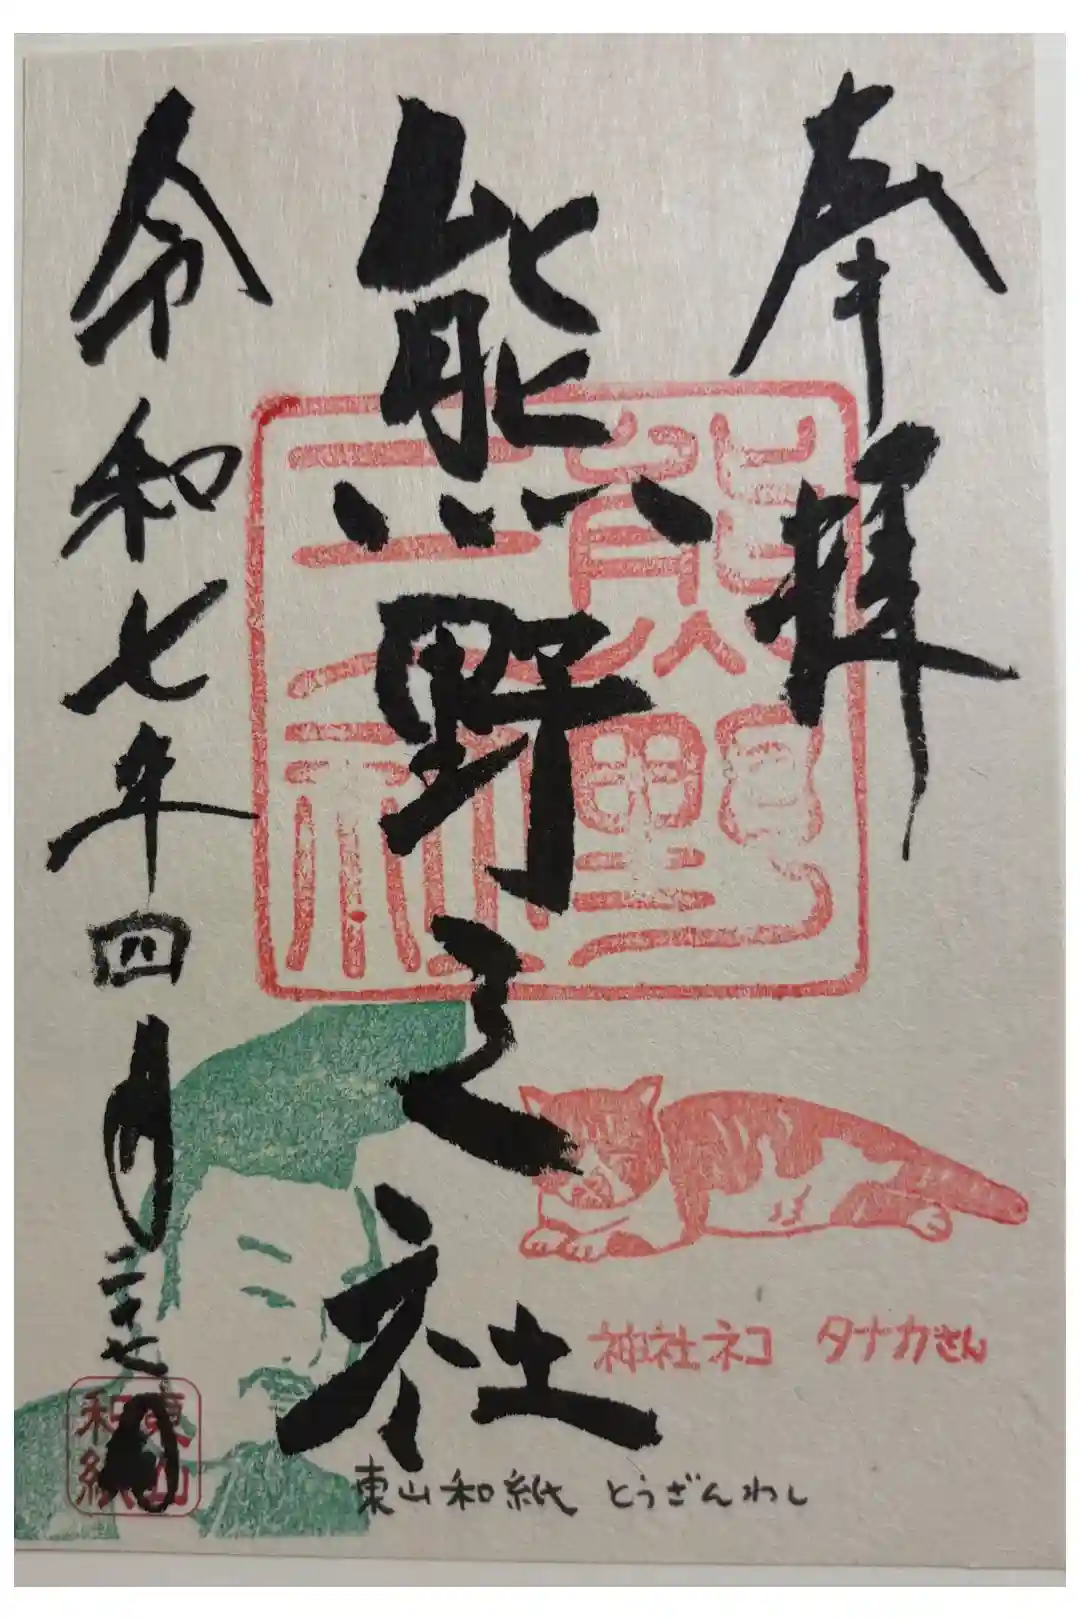 奉拝
熊野三社
令和七年四月二十七日
熊野
三社
神社ネコ タナカさん
東山和紙 とうざんわし
東山
和紙